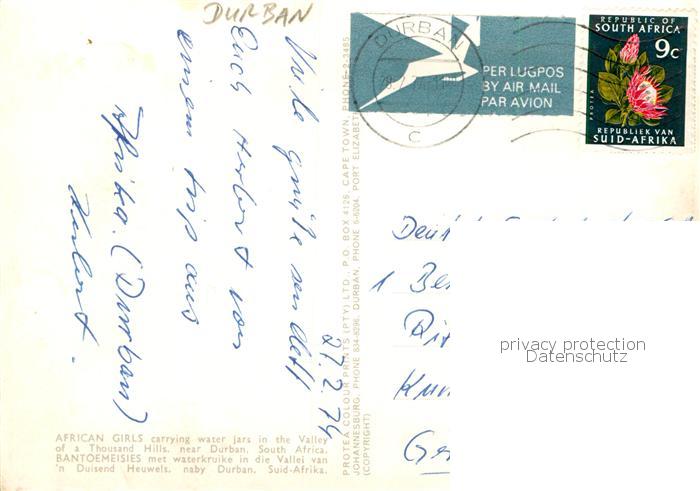 DURBAN
Viele Grüße sendet
Euch Herbert von
einem trip aus
Afrika. (Durban)
Herbert.
27.2.74
AFRICAN GIRLS carrying water jars in the Valley
of a Thousand Hills, near Durban, South Africa.
BANTOEMEISIES met waterkruike in die Vallei van
'n Duisend Heuwels, naby Durban, Suid-Afrika.
PROTEA COLOUR PRINTS (PTY) LTD., P.O. BOX 4126, CAPE TOWN, PHONE 2-3485
JOHANNESBURG, PHONE 834-8296, DURBAN, PHONE 6-6204, PORT ELIZABETH
(COPYRIGHT)
DURBAN
C
PER LUGPOS
BY AIR MAIL
PAR AVION
REPUBLIC OF
SOUTH AFRICA
9c
PROTEA
REPUBLIEK VAN
SUID-AFRIKA
1
privacy protection
Datenschutz